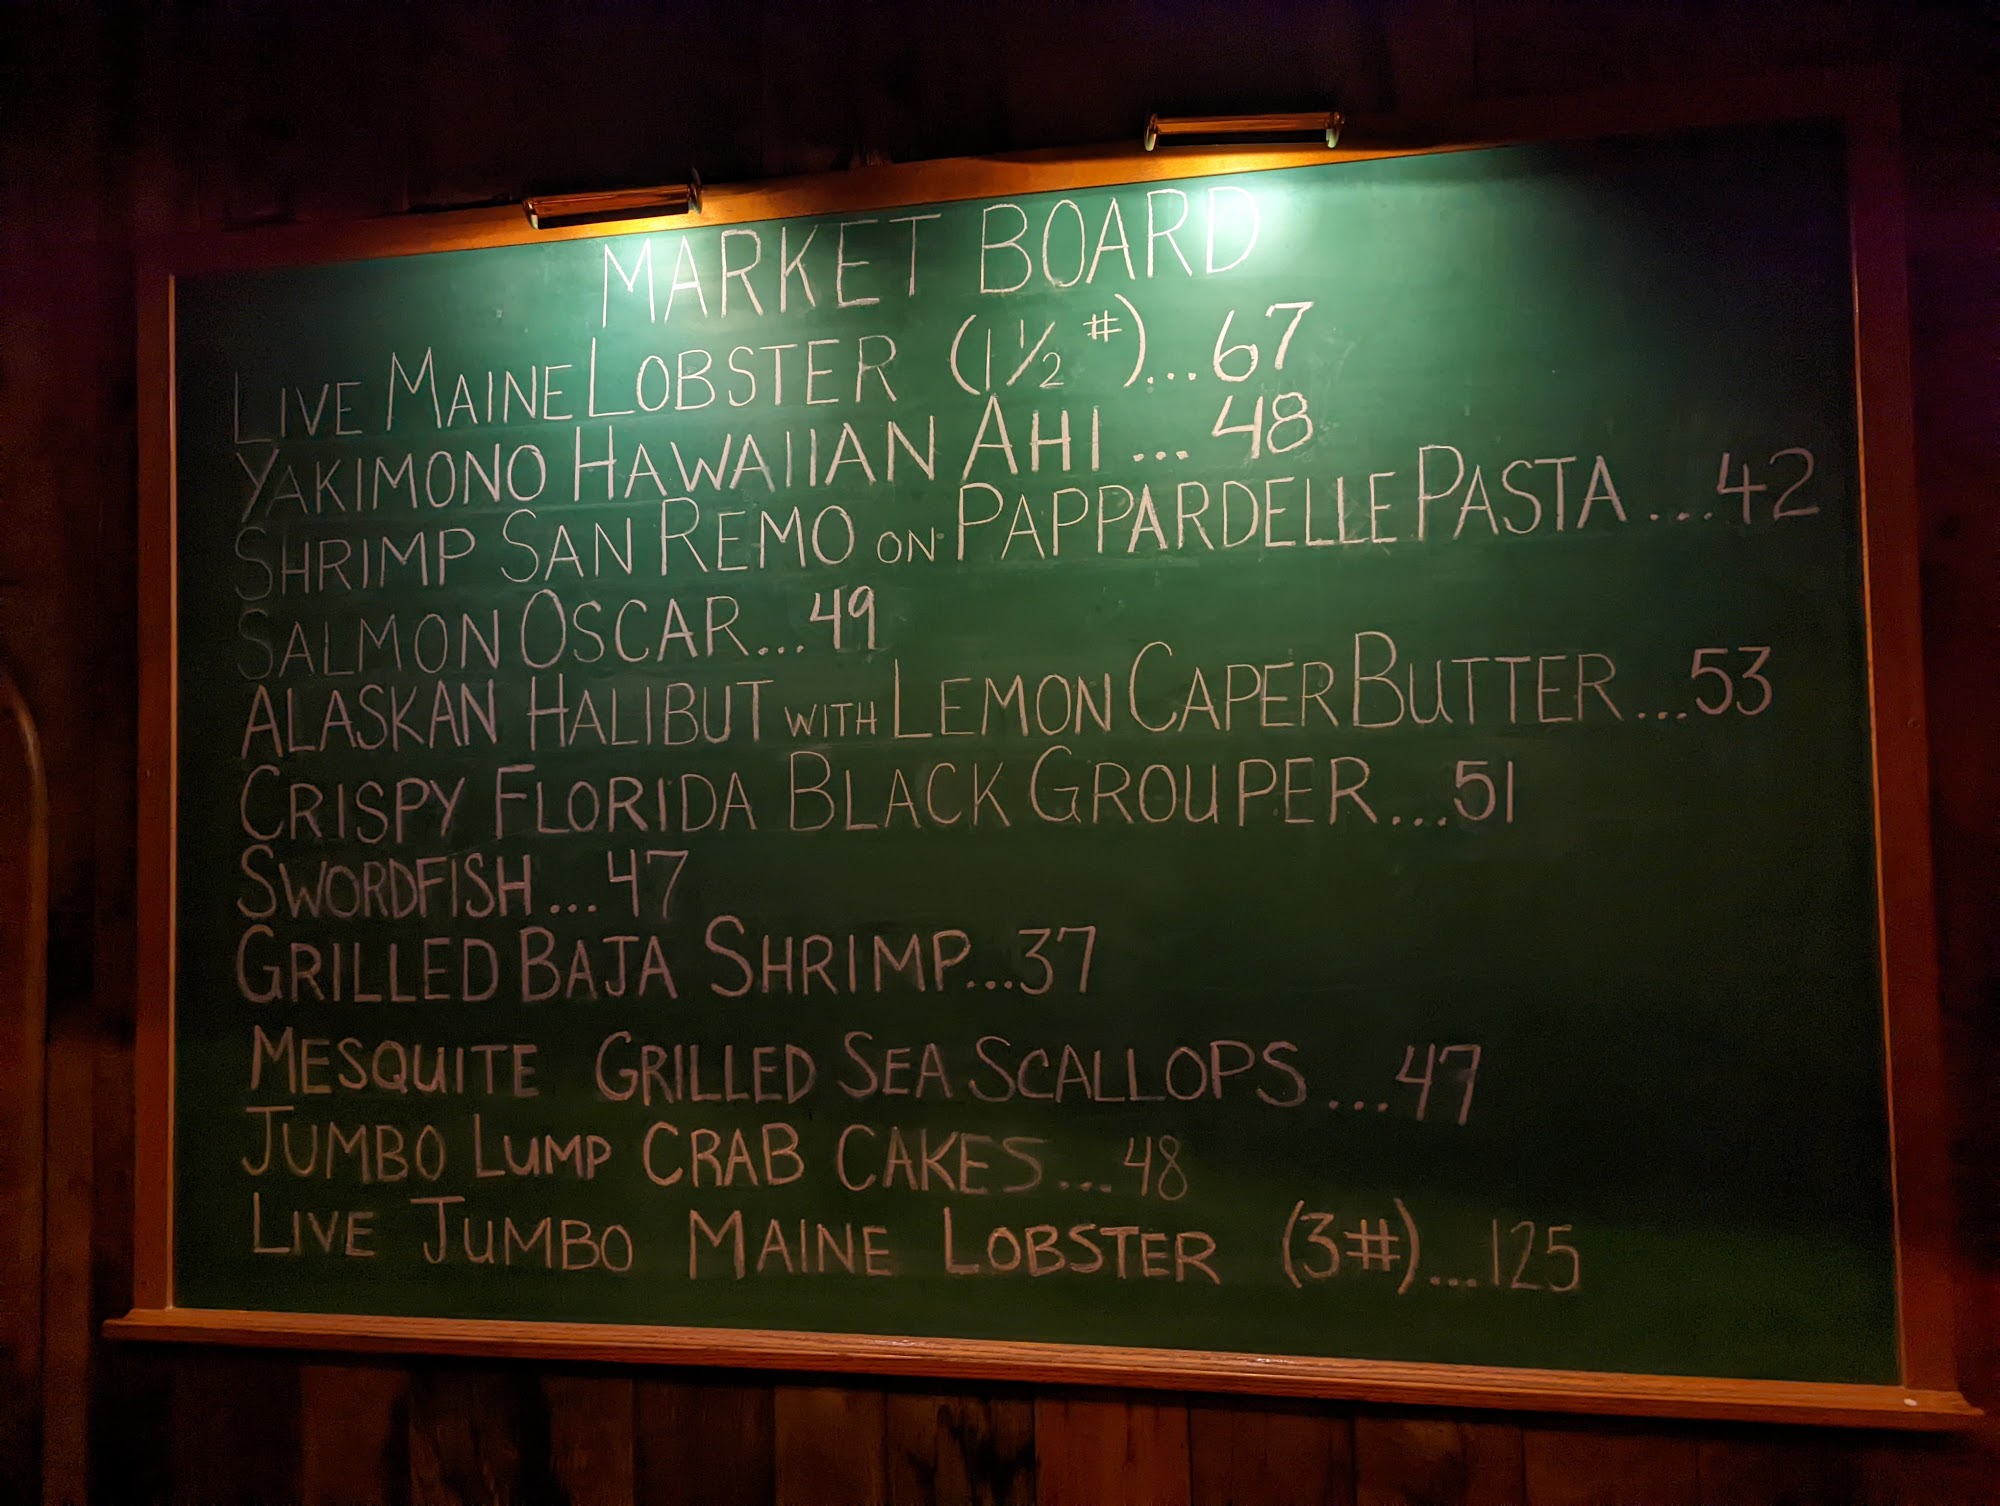 MARKET BOARD
LIVE MAINE LOBSTER (1 1/2 #)...67
YAKIMONO HAWAIIAN AHI ... 48
SHRIMP SAN REMO ON PAPPARDELLE PASTA ...42
SALMON OSCAR...49
ALASKAN HALIBUT WITH LEMON CAPER BUTTER ...53
CRISPY FLORIDA BLACK GROUPER...51
SWORDFISH... 47
GRILLED BAJA SHRIMP...37
MESQUITE GRILLED SEA SCALLOPS ...47
JUMBO LUMP CRAB CAKES...48
LIVE JUMBO MAINE LOBSTER (3#)...125